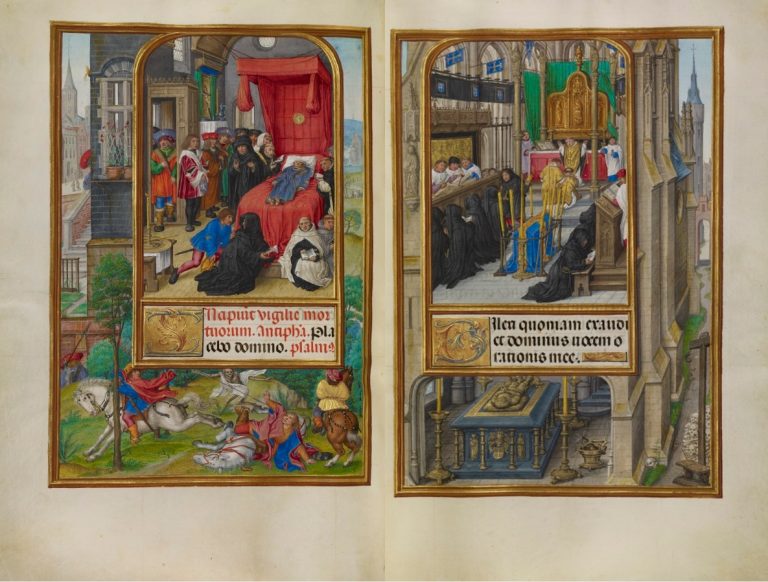 INcipiūt vigilie mor
tuorum. Antipha. Pla
cebo domino. psalmꝰ
Dilexi quoniam exaudi
et dominus vocem o
rationis mee.